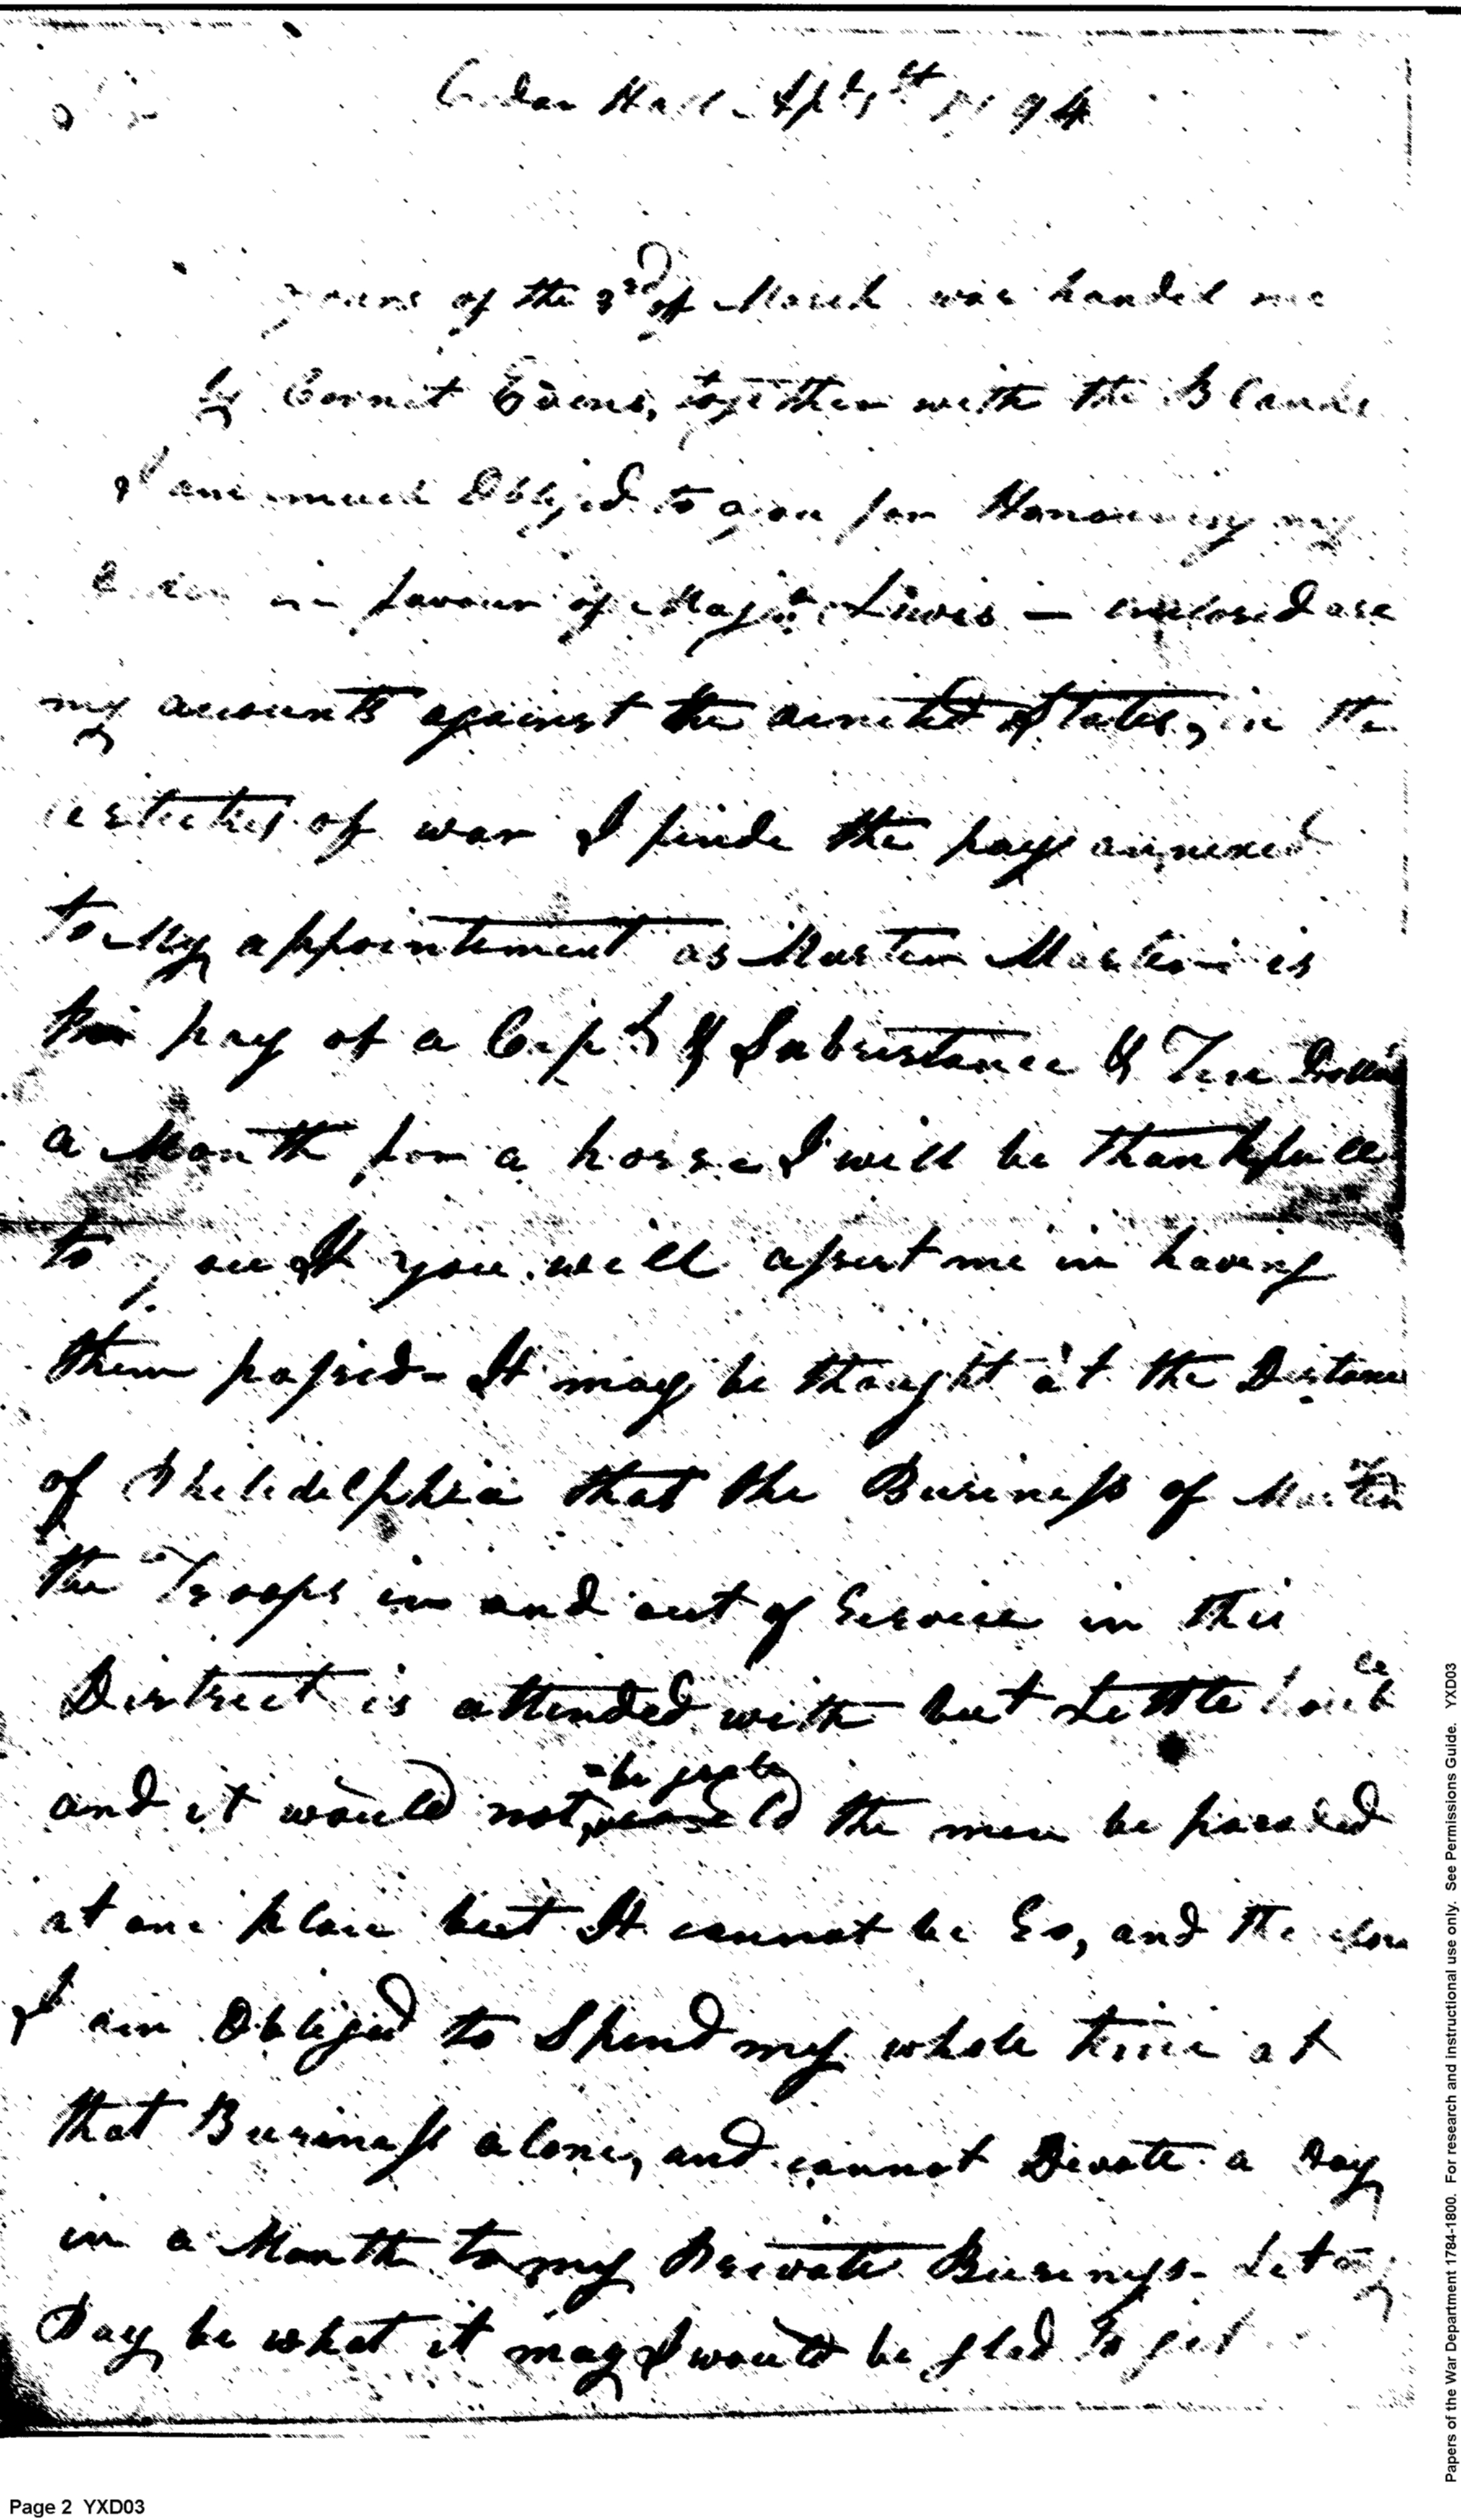 Cedar Hall - Apl 1st 1794
yours of the 3rd of March was handed me
by Cornet Evens, together with the Blanks
I am much Obliged to you for Honouring my
in favour of Majr Lewis — enclosed are
my accounts against the united States, in the
of war I finde the pay annexed
to My appointment as Muster Master is
the pay of a Capt & Subsistance & Ten Dollars
a Month for a horse I will be thankfull
to you If you will assist me in having
them passed - It may be thought at the Distance
of Philidelphia that the Business of Mustering
the Troops in and out of Service in this
District is attended with but Little Trouble
be great
and it would not could the men be paraded
at one place but It cannot be So, and therefore
I am Obliged to Spend my whole time at
that Business alone, and cannot Devote a Day
in a Month to my Private Business - Let my
Pay be what it may I would be glad to get
Page 2 YXD03
Papers of the War Department 1784-1800. For research and instructional use only. See Permissions Guide. YXD03